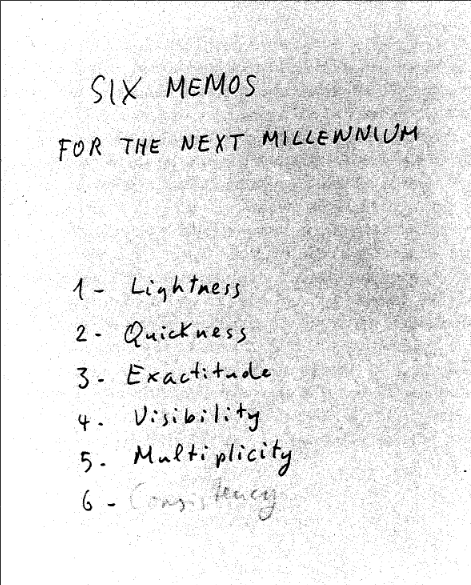 SIX MEMOS
FOR THE NEXT MILLENNIUM
1 - Lightness
2 - Quickness
3 - Exactitude
4. Visibility
5. Multiplicity
6 - Consistency